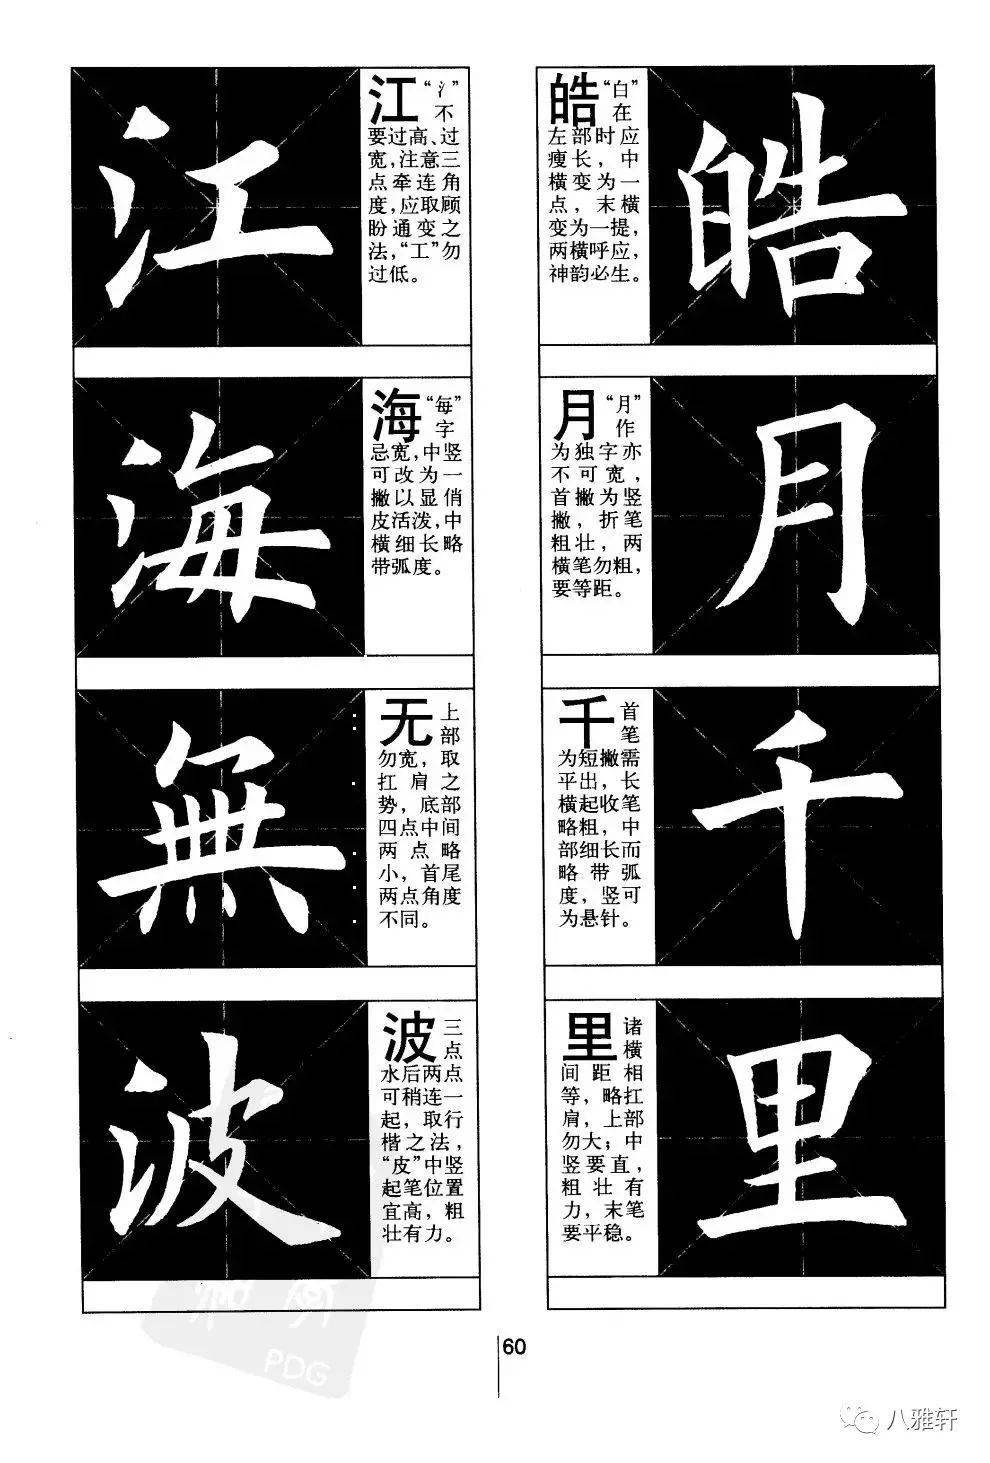 皓
皓“白”
在
左部时应
瘦长，中
横变为一
点，末横
变为一提，
两横呼应，
神韵必生。
月
月“月”
作
为独字亦
不可宽，
首撇为竖
撇，折笔
粗壮，两
横笔勿粗，
要等距。
千
千首
笔
为短撇需
平出，长
横起收笔
略粗，中
部细长而
略带弧
度，竖可
为悬针。
里
里诸
横
间距相
等，略扛
肩，上部
勿大；中
竖要直，
粗壮有
力，末笔
要平稳。
江
江“氵”
不
要过高、过
宽，注意三
点牵连角
度，应取顾
盼通变之
法，“工”勿
过低。
海
海“每”
字
忌宽，中竖
可改为一
撇以显俏
皮活泼，中
横细长略
带弧度。
無
无上
部
勿宽，取
扛肩之
势，底部
四点中间
两点略
小，首尾
两点角度
不同。
波
波三
点
水后两点
可稍连一
起，取行
楷之法，
“皮”中竖
起笔位置
宜高，粗
壮有力。
60
PDG
八雅轩